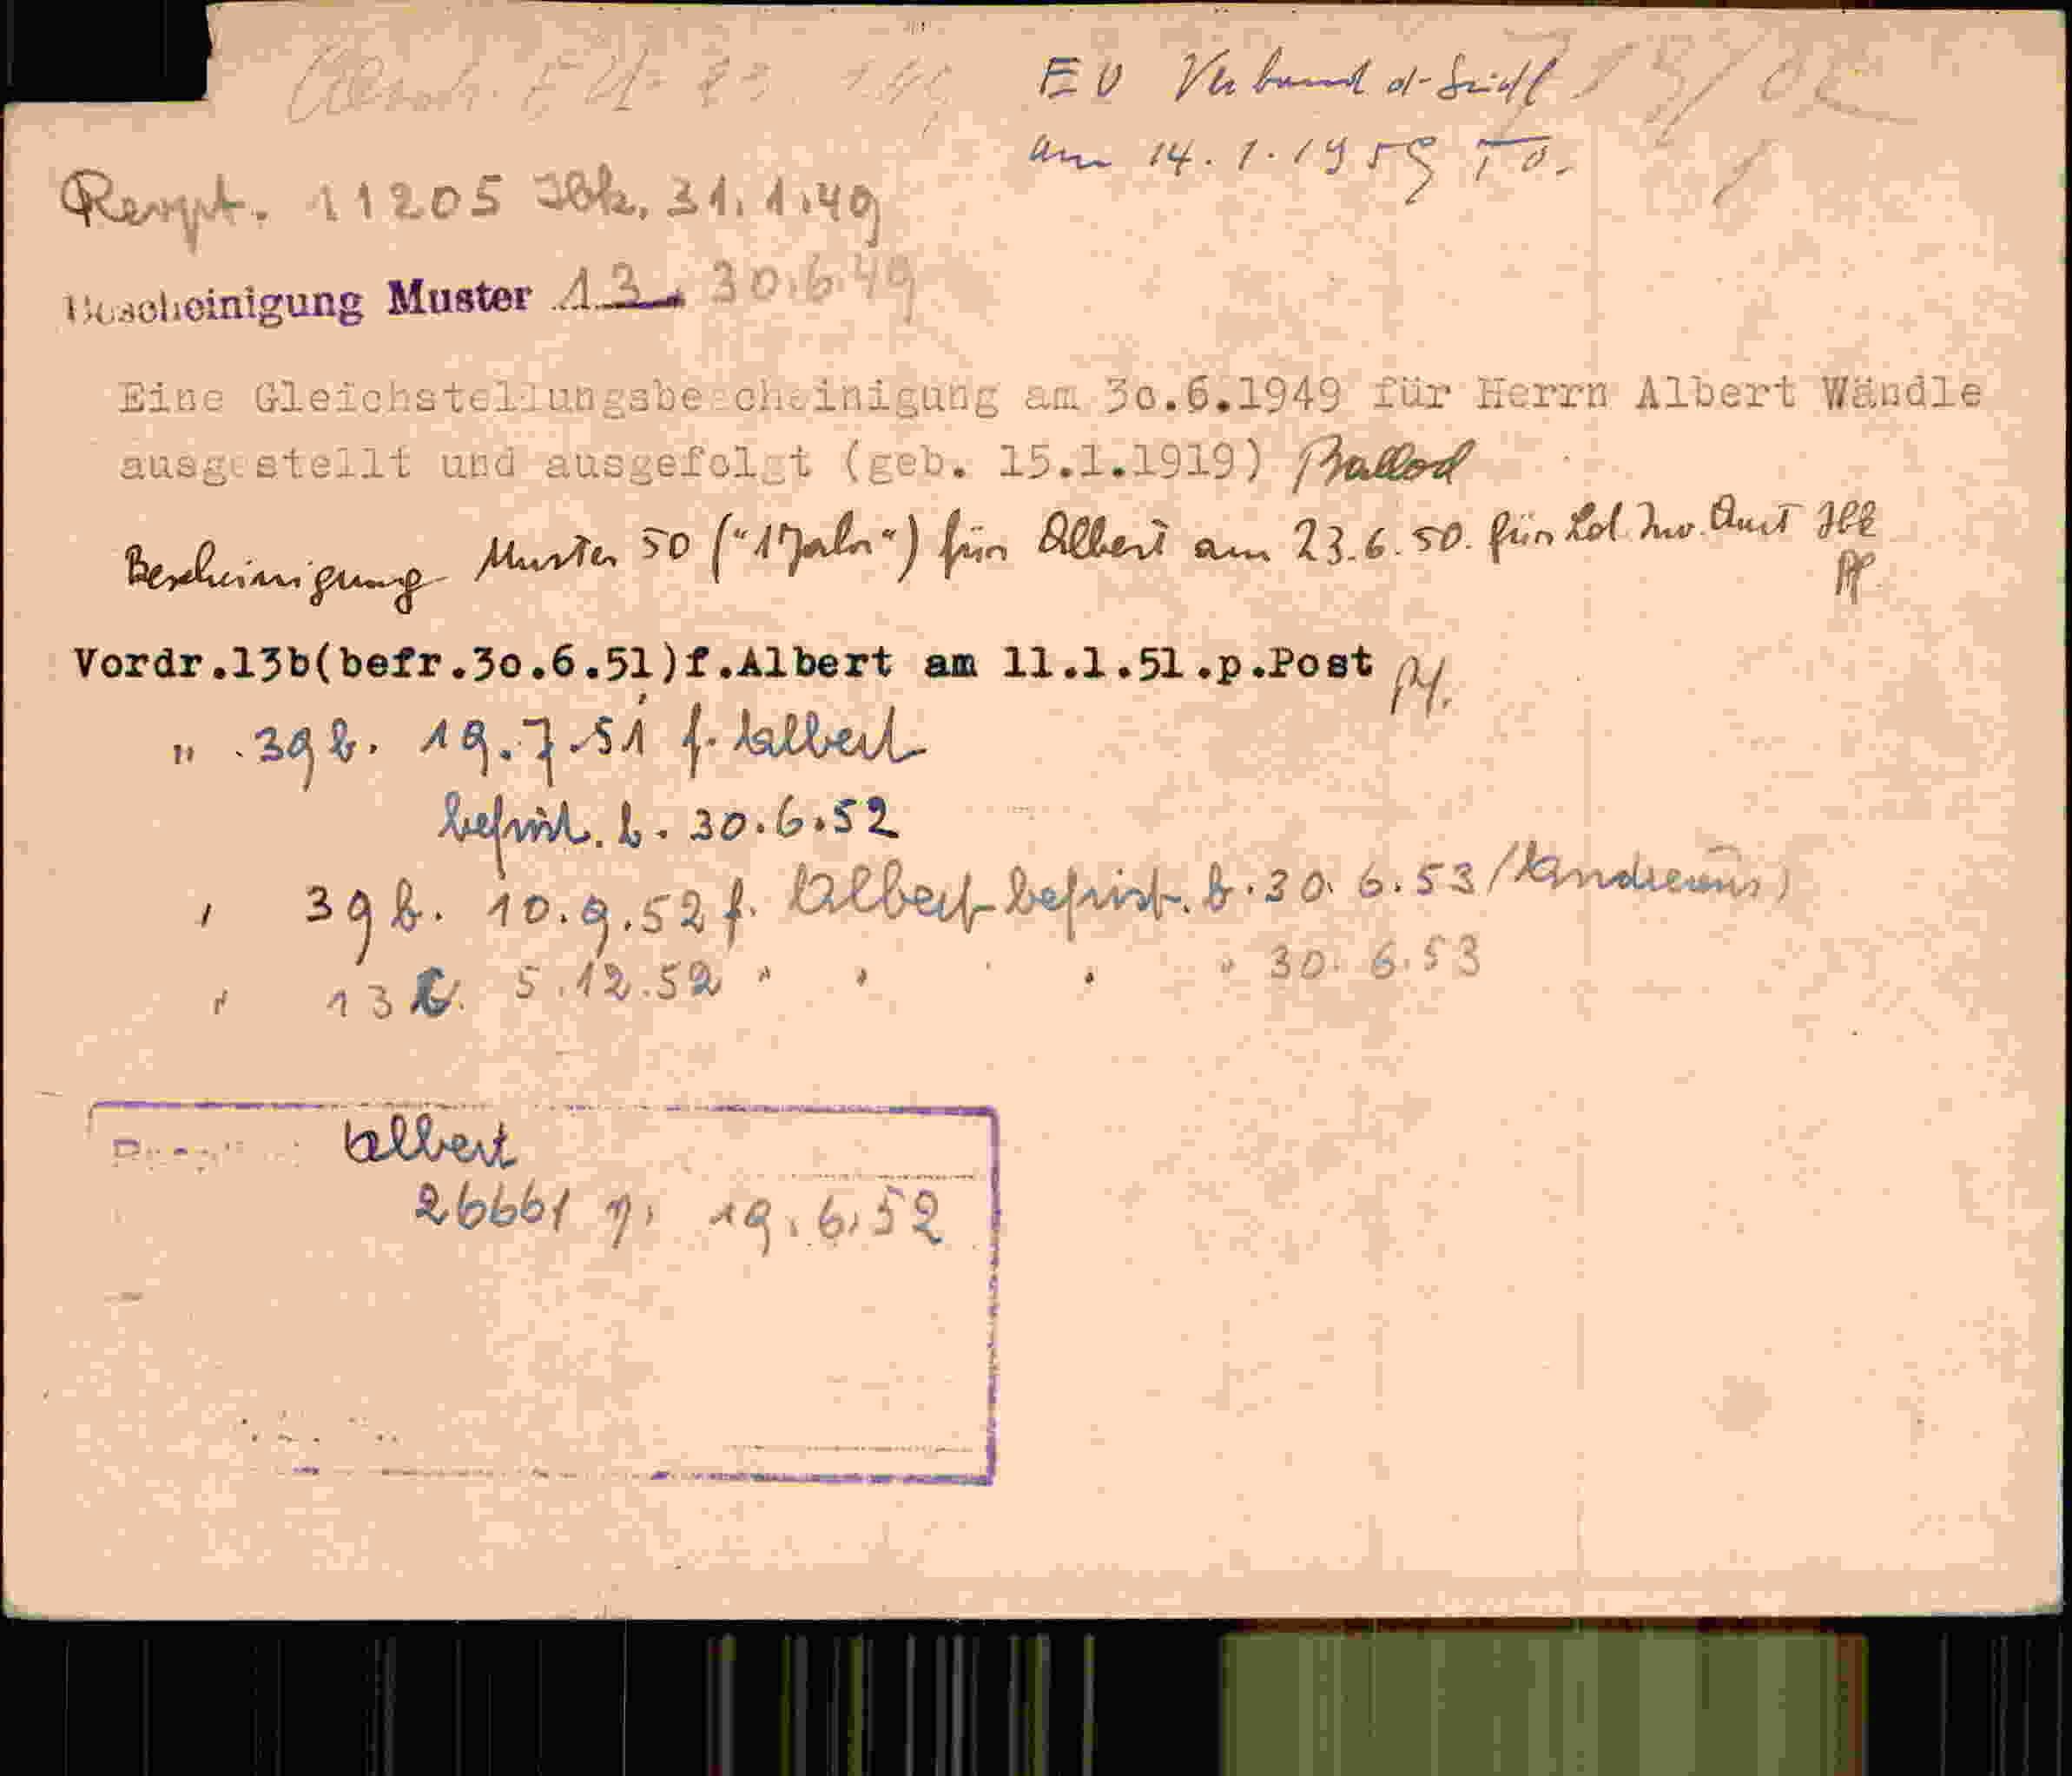 EU Verband d. Südt
am 14.1.1959
Rempt. 11205 Ibk. 31.1.49
Bescheinigung Muster 13 30.6.49
Eine Gleichstellungsbescheinigung am 30.6.1949 für Herrn Albert Wändle
ausgestellt und ausgefolgt (geb. 15.1.1919) Ballod
Bescheinigung Muster 50 ("1 Jahr") für Albert am 23.6.50. für Ld. Inv. Amt Ibk
Vordr.13b(befr.30.6.51)f.Albert am 11.1.51.p.Post
" . 39 b. 19.7.51 f. Albert
befrist. b. 30.6.52
" 39 b. 10.9.52 f. Albert befrist. b. 30.6.53
" 13 5.12.52 " " " 30.6.53
Albert
26661 19.6.52